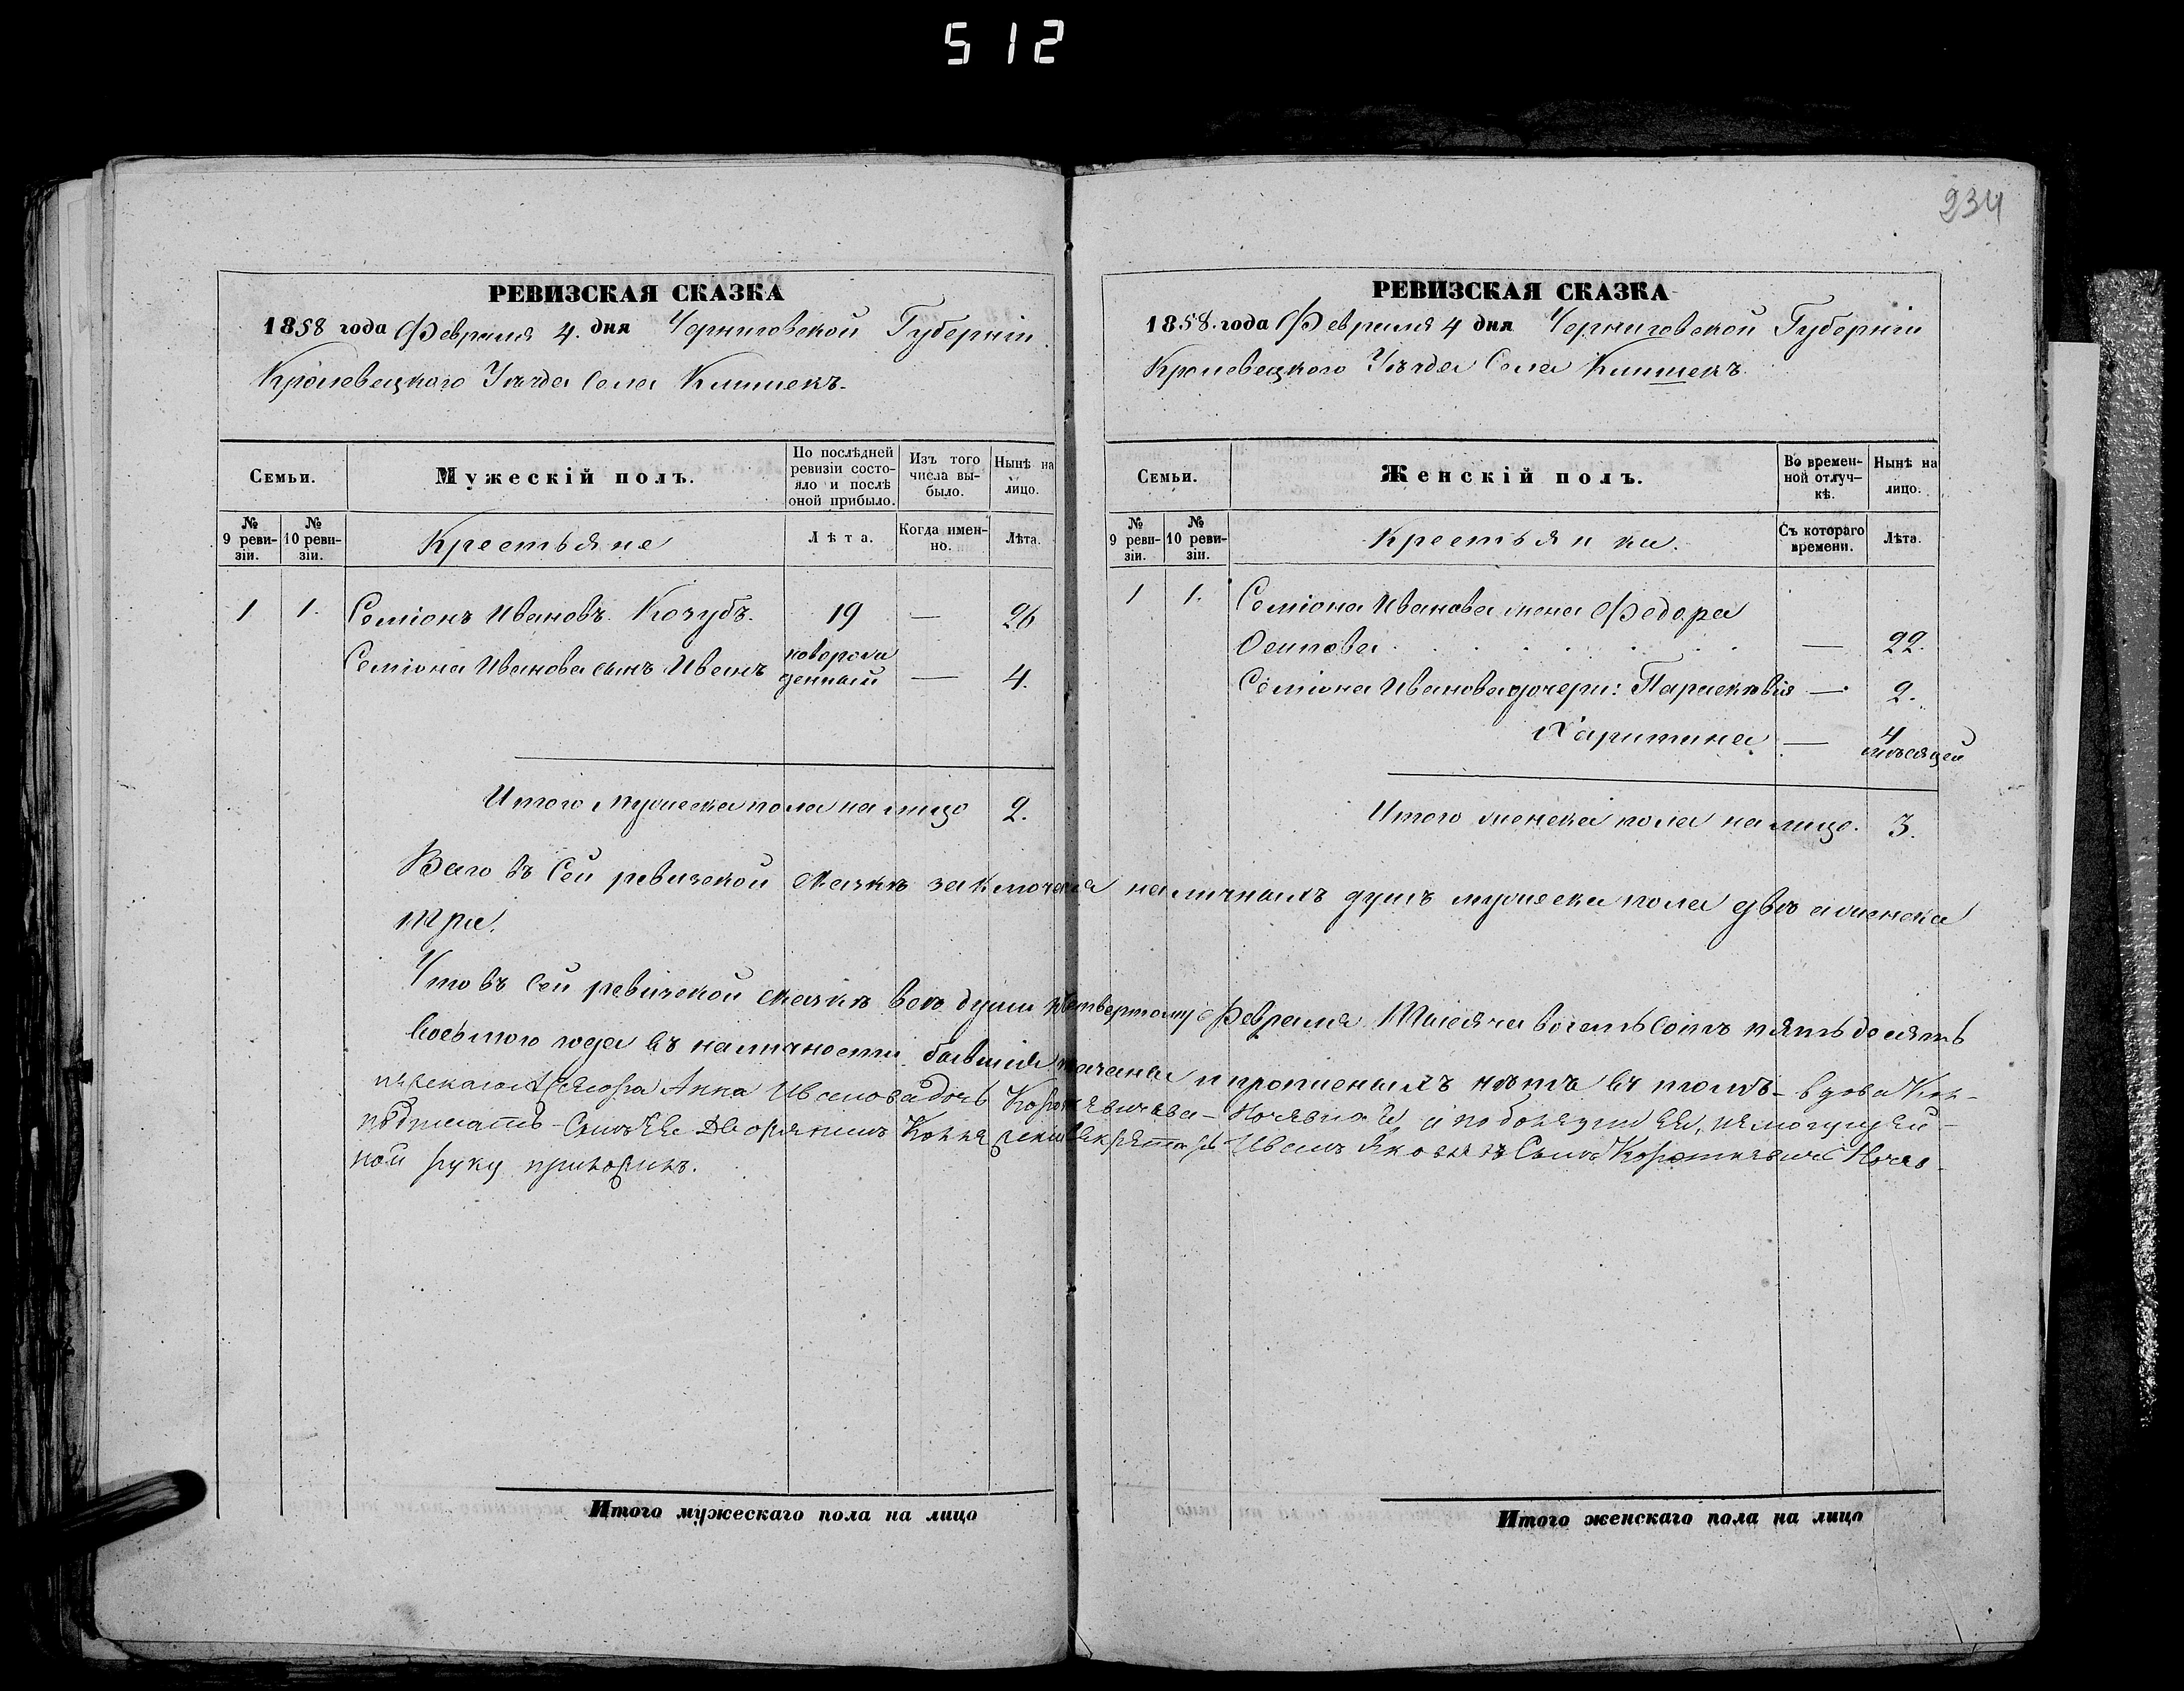 512
234
РЕВИЗСКАЯ СКАЗКА
1858 года Февраля 4. дня Черниговской Губерніи
Кролевецкого Уѣзда Села Клишекъ.
Семьи.
Мужескій полъ.
По послѣдней ревизіи состояло и послѣ оной прибыло.
Изъ того числа выбыло.
Нынѣ на лицо.
№ 9 ревизіи.
№ 10 ревизіи.
Крестьяне
Лѣта.
Когда именно.
Лѣта.
1 1. Семіонъ Ивановъ Кочубъ. 19 — 26
Семіона Иванова сынъ Иванъ новорожденный — 4.
Итого мужеска пола на лицо 2.
РЕВИЗСКАЯ СКАЗКА
1858. года Февраля 4 дня Черниговской Губерніи
Кролевецкого Уѣзда Села Клишекъ
Семьи.
Женскій полъ.
Во временной отлучкѣ.
Нынѣ на лицо.
№ 9 ревизіи.
№ 10 ревизіи.
Крестьянки.
Съ котораго времени.
Лѣта.
1 1. Семіона Иванова жена Федора
Осипова — 22.
Семіона Иванова дочери: Парасковія — 2.
Харитина — 4 мѣсяцей
Итого женска пола на лицо. 3.
Всего въ сей ревизской сказкѣ заключена наличныхъ душъ мужеска пола двѣ а женска
три.
Что въ сей ревизской сказкѣ всѣ души четвертому Февраля Мѣсяца восемьсотъ пятьдесятъ
восьмого года въ наличности бывшія и прописныхъ нѣтъ въ томъ вдова
Анна Иванова дочь
Сынъ Ея Дворянинъ Иванъ Яковлевъ Сынъ
руку приложилъ.
Итого мужескаго пола на лицо
Итого женскаго пола на лицо